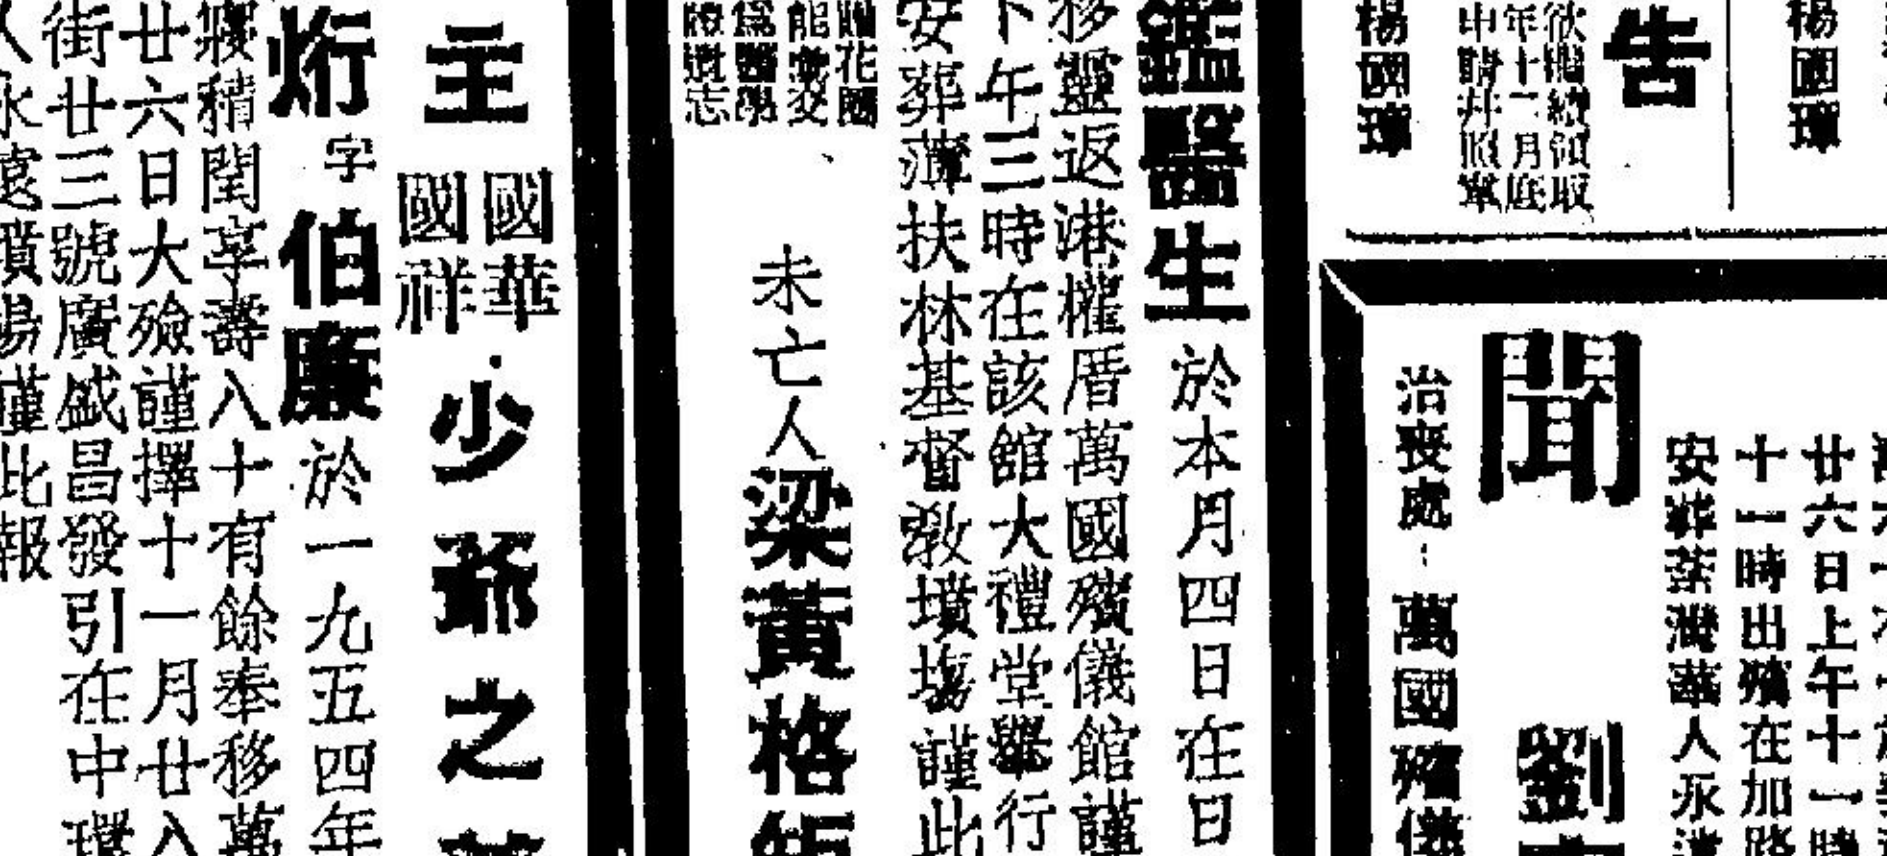 楊國璋
告
欲繼續領取
年十二月底
申請幷照章
楊國璋
廿六日上午十一時
十一時出殯在加路
安葬荃灣華人永遠
聞
劉
治喪處
萬國殯儀
鑑醫生於本月四日在日
移靈返港權厝萬國殯儀館謹
下午三時在該館大禮堂舉行
安葬薄扶林基督敎墳塲謹此
花圈
能變交
爲醫學
遺志
未亡人梁黃格
主
國華
國祥
少爺之
炳字伯廉於一九五四年
寢積閏享壽八十有餘奉移萬
廿六日大殮謹擇十一月廿八
街廿三號廣盛昌發引在中環
人永遠墳塲謹此報